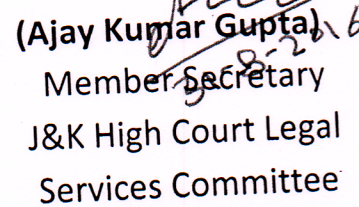 (Ajay Kumar Gupta)
Member Secretary
J&K High Court Legal
Services Committee